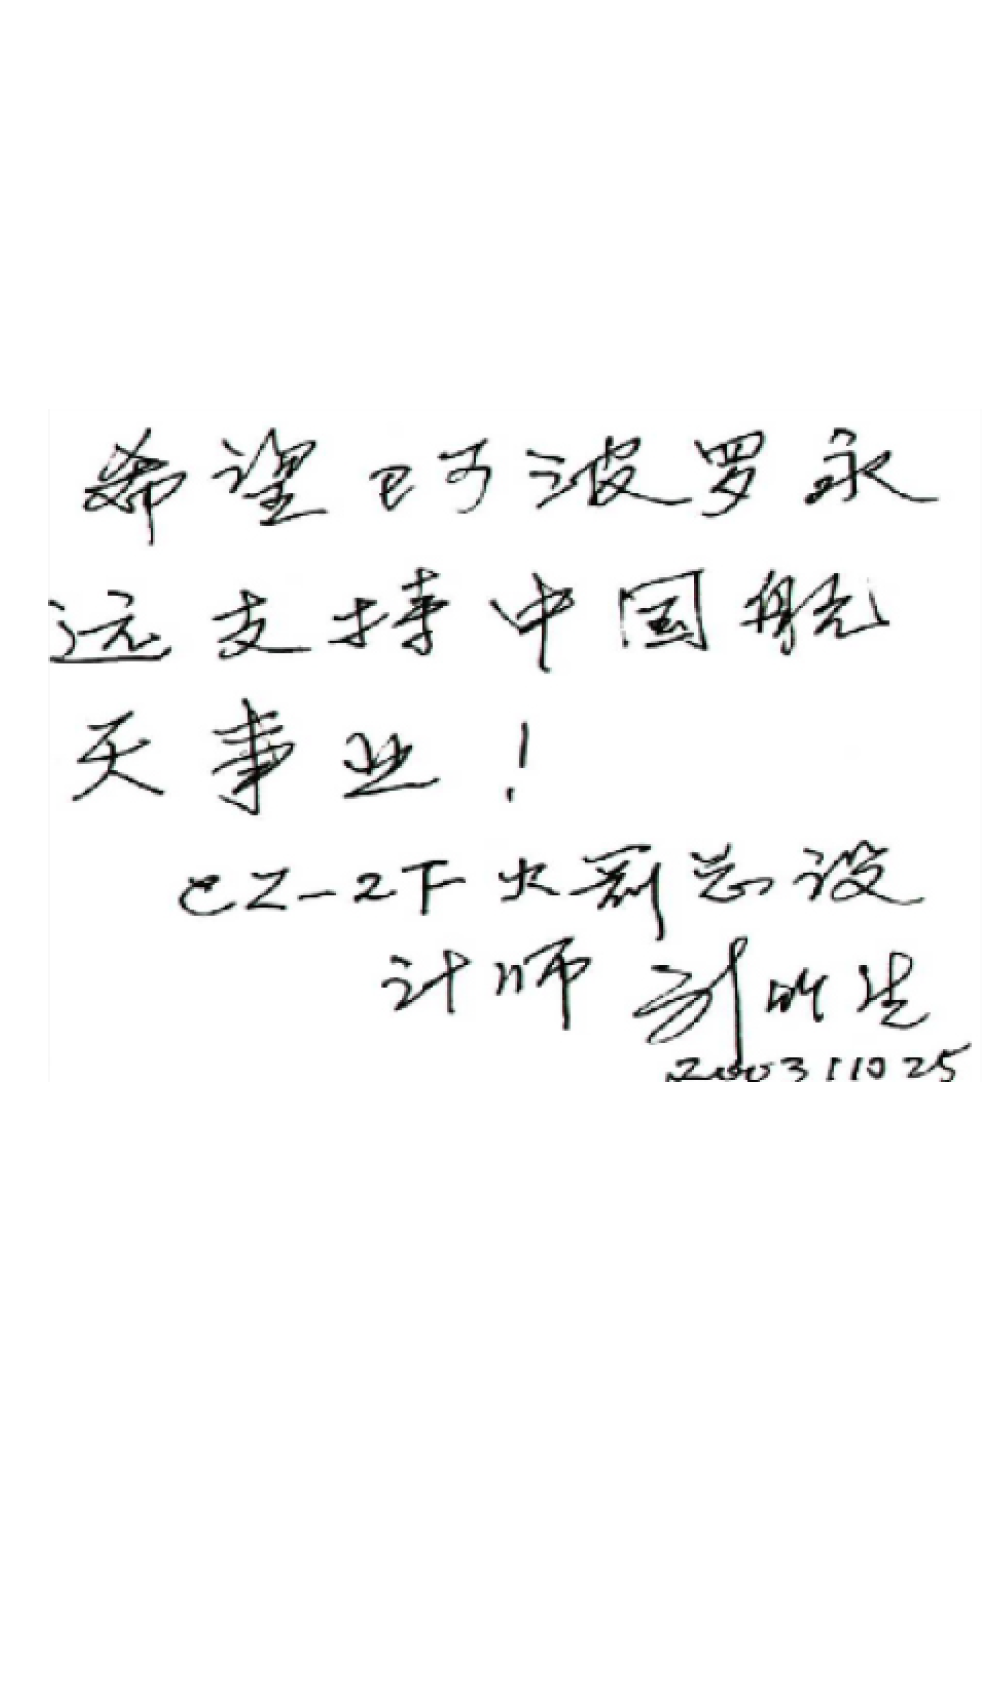 希望阿波罗永
远支持中国航
天事业！
CZ-2F火箭总设
计师 刘竹生
2003 11 0 25